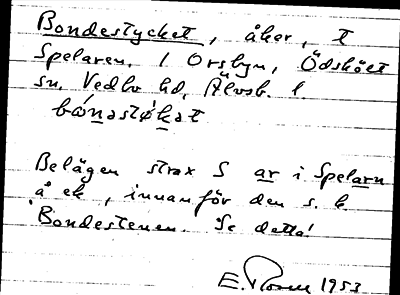 Bondestycket, åker, t
Spelaren. 1 Orsbyn, Ödsköls
sn, Vedbo hd, Älvsb. l.
bónastøkat
Belägen strax S ar i Spelarn
å ek, innanför den s. k.
Bondestenen. Se detta!
E. 1953